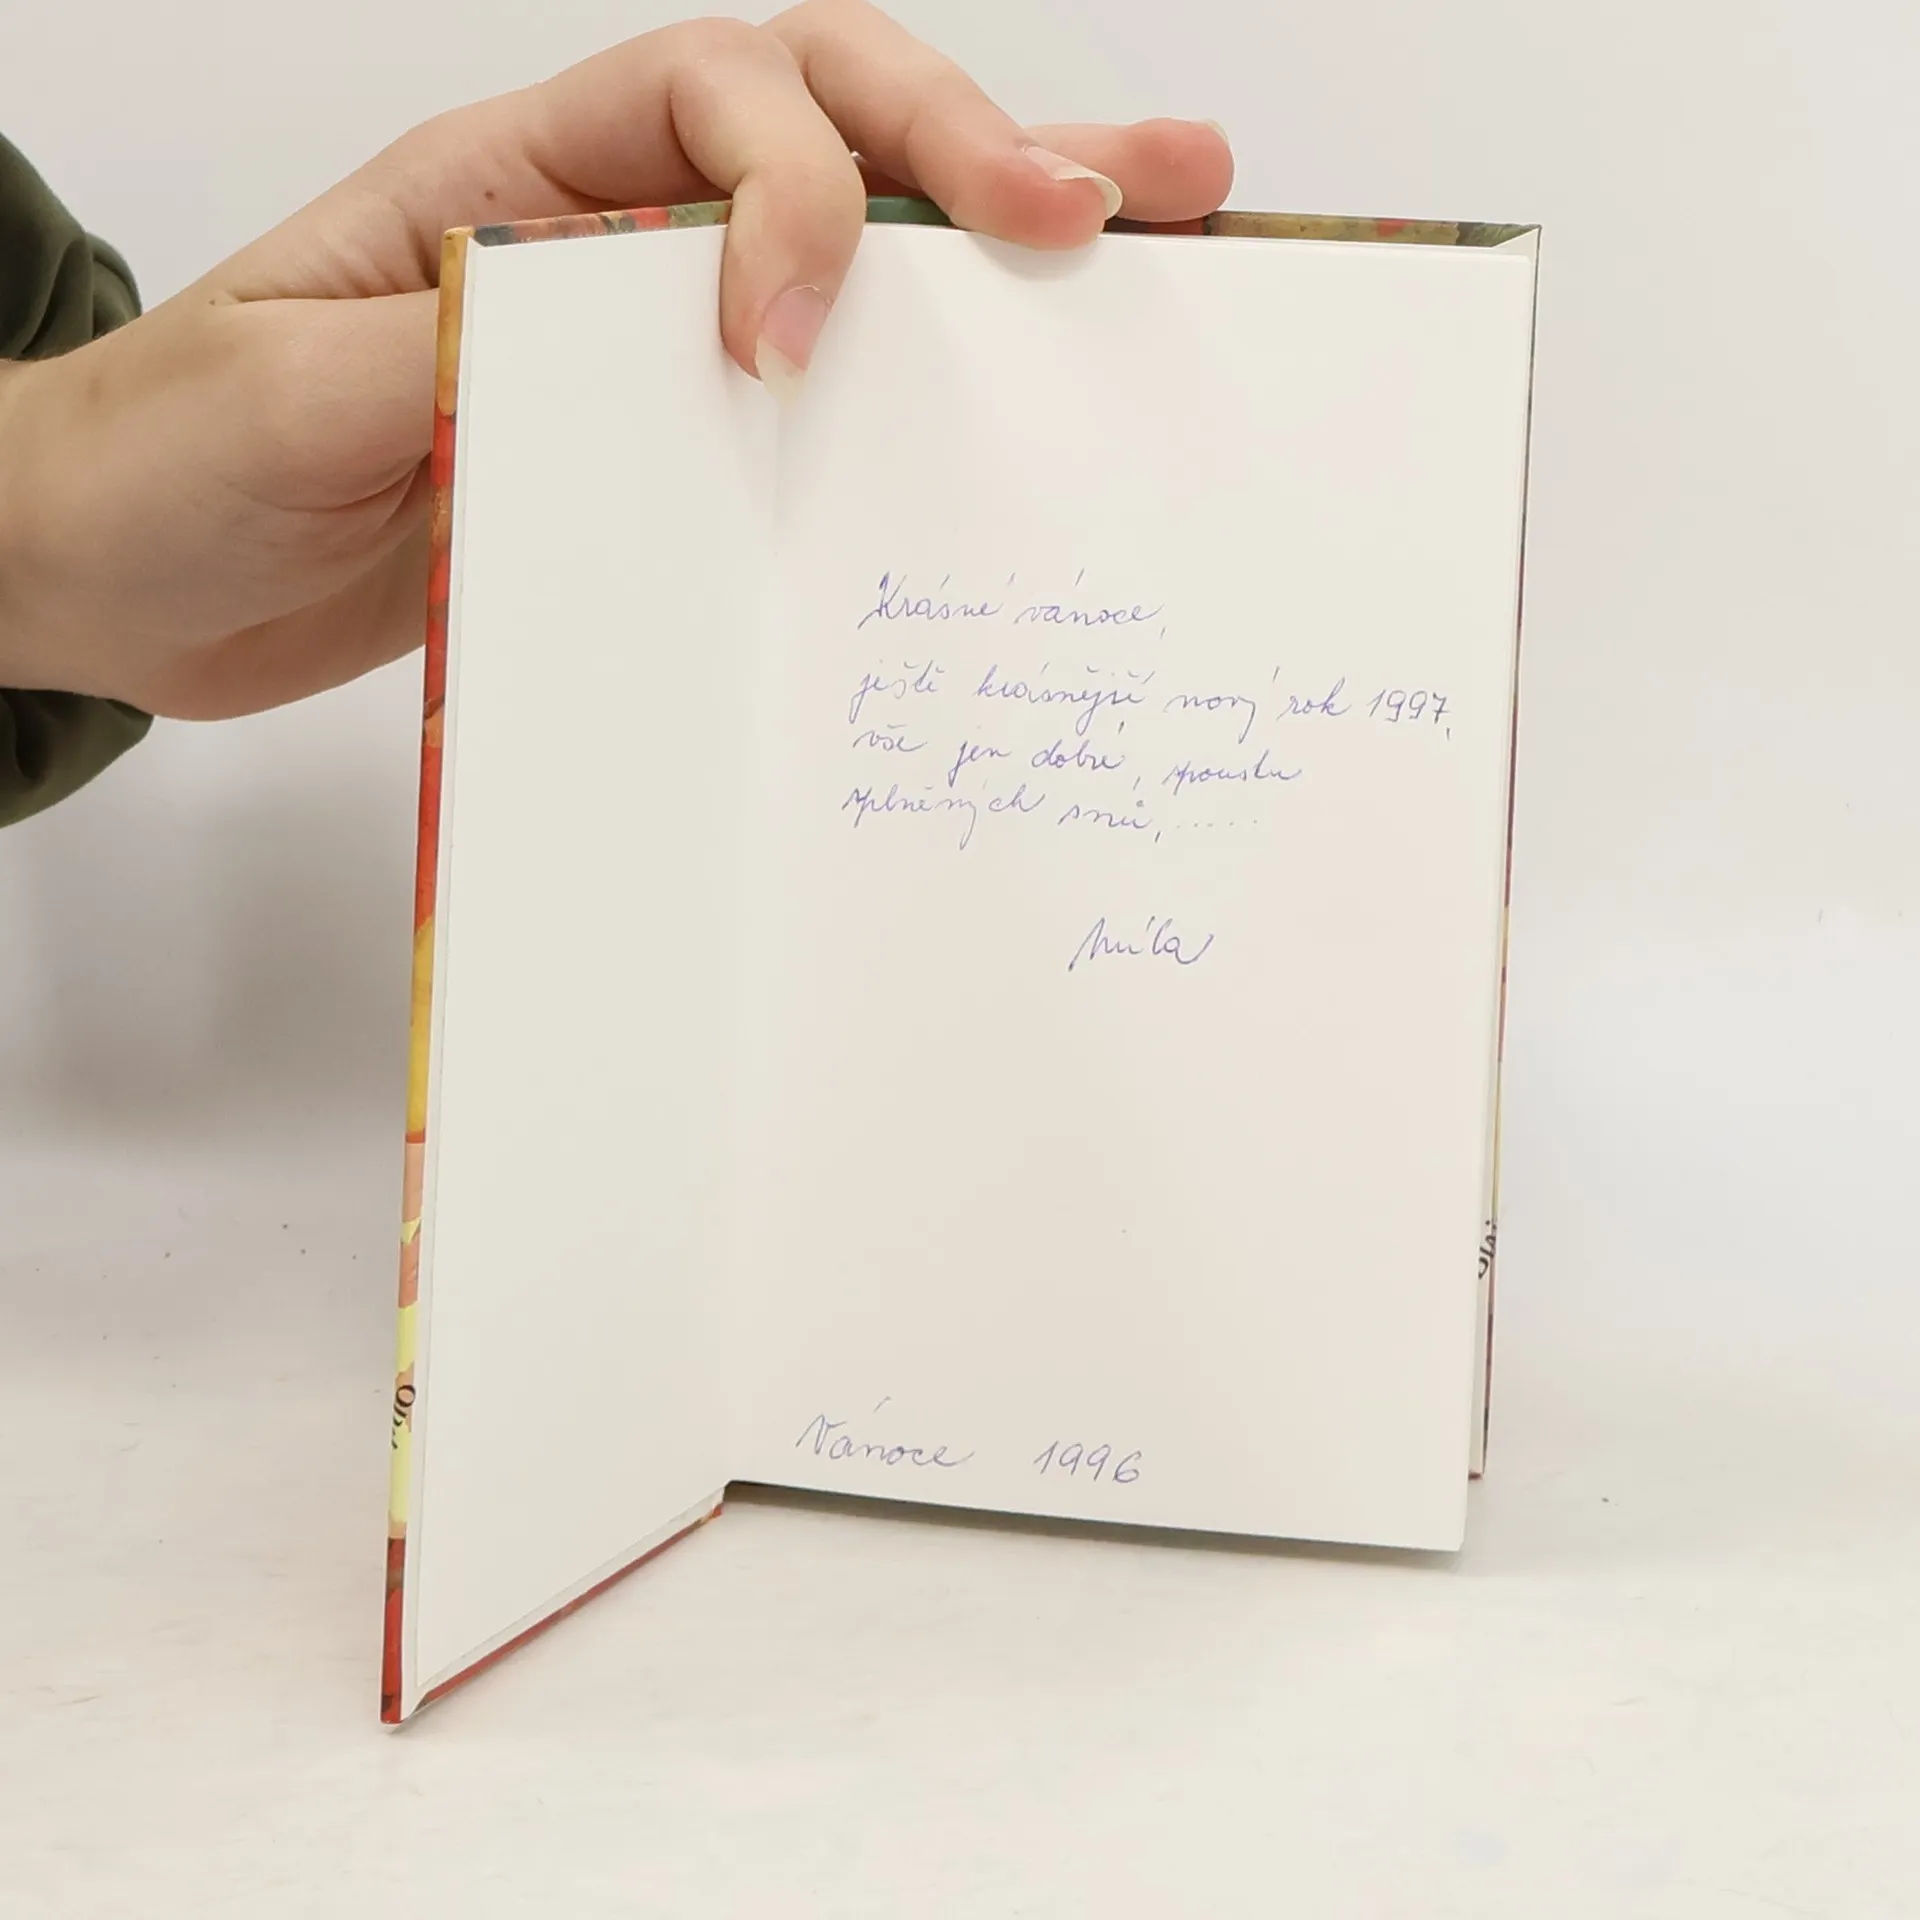 Krásné vánoce,
ještě krásnější nový rok 1997,
vše jen dobré, spoustu
splněných snů, .....
Míla
Vánoce 1996